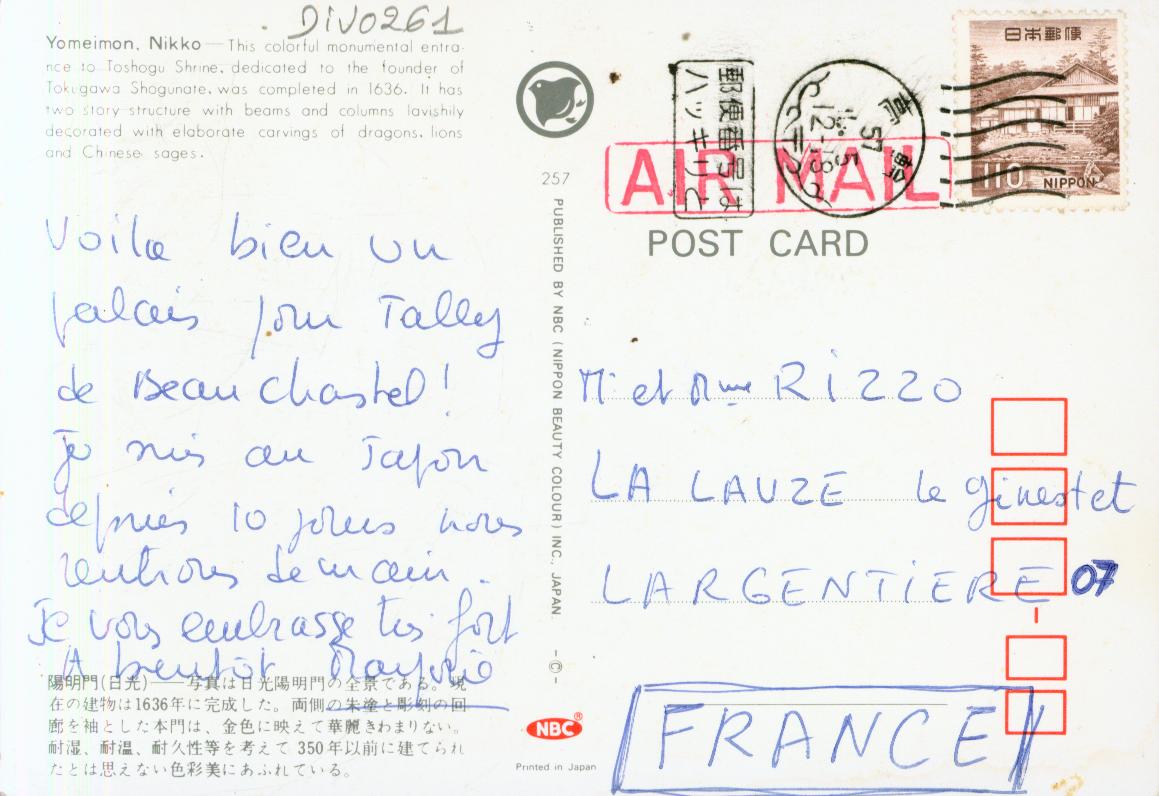 DIV0261
Yomeimon, Nikko—This colorful monumental entra-
nce to Toshogu Shrine, dedicated to the founder of
Tokugawa Shogunate, was completed in 1636. It has
two story structure with beams and columns lavishily
decorated with elaborate carvings of dragons, lions
and Chinese sages.
Voila bien un
palais pour Tally
de Beauchastel!
Je suis au Japon
depuis 10 jours nous
rentrons demain.
Je vous embrasse très fort
A bientôt
陽明門(日光)——写真は日光陽明門の全景である。現
在の建物は1636年に完成した。両側の朱塗と彫刻の回
廊を袖とした本門は、金色に映えて華麗きわまりない。
耐湿、耐温、耐久性等を考えて350年以前に建てられ
たとは思えない色彩美にあふれている。
257
PUBLISHED BY NBC (NIPPON BEAUTY COLOUR) INC., JAPAN. -©-
NBC®
Printed in Japan
郵便番号は
ハッキリと
57
12-18
日本郵便
110 NIPPON
AIR MAIL
POST CARD
M et Mme RIZZO
LA LAUZE le ginestet
LARGENTIERE 07
FRANCE